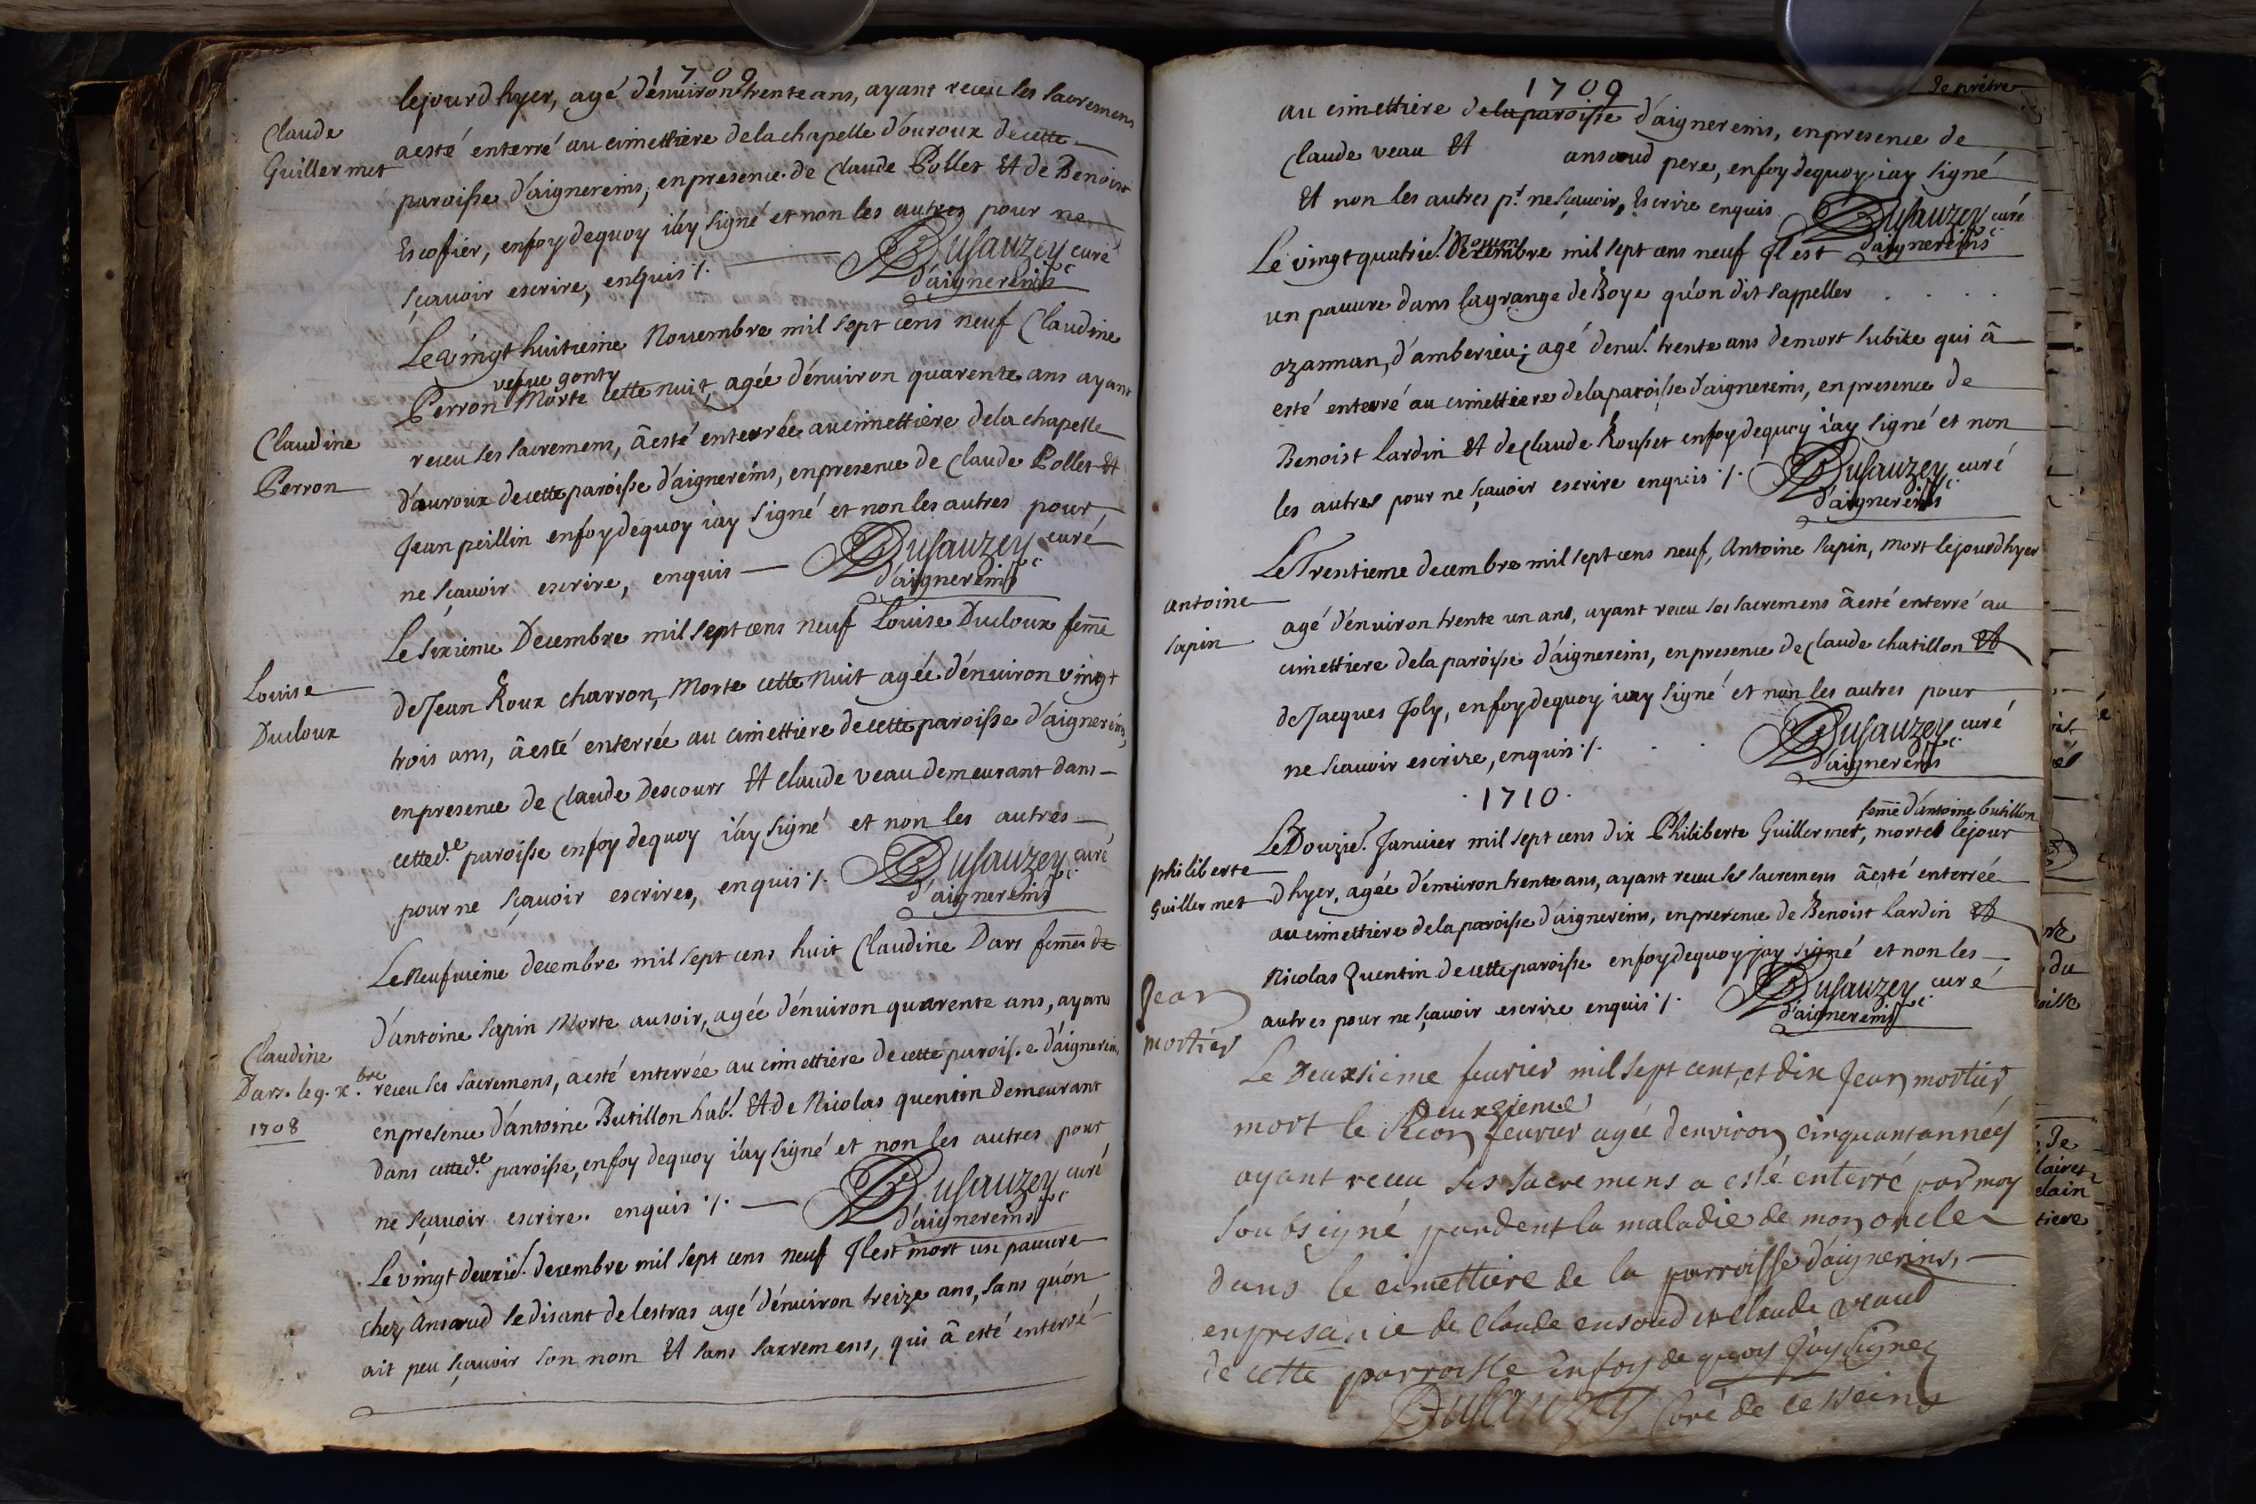 1709
le jour d'hyer, agé d'enuiron trente ans, ayant receu les sacremens
Claude
Guillermet
a esté enterré au cimettiere de la chapelle d'ouroux de cette
paroisse d'aignereins, en presence de Claude Pollet Et de Benoist
Escofier, en foy de quoy i'ay signé et non les autres pour ne
sçauoir escrire, enquis ./. Dusauzey curé
d'aignereins
Le vingt huitieme Nouembre mil sept cens neuf Claudine
vefue gonty
Perron Morte cette nuit, agée d'enuiron quarente ans ayant
Claudine
Perron
receu ses sacremens, â esté enterrée au cimettiere de la chapelle
d'ouroux de cette paroisse d'aignereins, en presence de Claude Pollet Et
Jean peillin en foy de quoy i'ay signé et non les autres pour
ne sçauoir escrire, enquis Dusauzey curé
d'aignereins
Le sixieme Decembre mil sept cens neuf Louise Ducloux feme
Louise
Ducloux
de Jean Roux charron, Morte cette nuit agée d'enuiron vingt
trois ans, â esté enterrée au cimettiere de cette paroisse d'aignereins,
en presence de Claude Descours Et Claude veau demeurant dans
cetted.e paroisse en foy de quoy i'ay signé et non les autres
pour ne sçauoir escrires, enquis ./. Dusauzey curé
d'aignereins
Le Neufuieme decembre mil sept cens huit Claudine Dars femme de
d'antoine Sapin Morte au soir, agée d'enuiron quarente ans, ayans
Claudine
Dars. le 9. x.bre
1708
receu ses sacremens, a esté enterrée au cimettiere de cette paroisse d'aignereins
en presence d'antoine Butillon hab.t Et de Nicolas quentin demeurant
dans cetted.e paroisse, en foy de quoy i'ay signé et non les autres pour
ne sçauoir escrire. enquis ./. Dusauzey curé
d'aignereins
Le vingt deuxie. decembre mil sept cens neuf Il est mort un pauure
chez Ansaud se disant de lestras agé d'enuiron treize ans, sans qu'on
ait peu sçauoir son nom Et sans sacremens, qui â esté enterré
1709
au cimettiere de la paroisse d'aignereins, en presence de
Claude veau Et ansaud pere, en foy de quoy i'ay signé
Et non les autres p.r ne sçauoir, Escrire enquis Dusauzey curé
d'aignereins
Nouem
Le vingt quatrie. Dezembre mil sept cens neuf Il est
un pauure dans la grange de Roye qu'on dit s'appeller . . . .
ozannan, d'amberieu; agé d'enu. trente ans de mort subite qui â
esté enterré au cimettiere de la paroisse d'aignereins, en presence de
Benoist Lardin Et de Claude Rouset en foy de quoy i'ay signé et non
les autres pour ne sçauoir escrire enquis ./. Dusauzey curé
d'aignereins
Le Trentieme decembre mil sept cens neuf, Antoine Sapin, mort le jour d'hyer
antoine
sapin
agé d'enuiron trente un ans, ayant receu ses sacremens â esté enterré au
cimettiere de la paroisse d'aignereins, en presence de Claude chatillon Et
de Jacques Joly, en foy de quoy i'ay signé et non les autres pour
ne sçauoir escrire, enquis ./. Dusauzey curé
d'aignereins
. 1710 .
feme d'antoine butillon
Le Douzie. Januier mil sept cens dix Philiberte Guillermet, morte le jour
philiberte
Guillermet
d'hyer, agée d'enuiron trente ans, ayant receu ses sacremens â esté enterrée
au cimettiere de la paroisse d'aignereins, en presence de Benoist Lardin Et
Nicolas Quentin de cette paroisse en foy de quoy j'ay signé et non les
autres pour ne sçauoir escrire enquis ./. Dusauzey curé
d'aignereins
Jean
mortier
Le Deuxsieme feurier mil sept cent, et dix Jean mortier
Deuxsieme
mort le Secon feurier agée denviron cinquant années
ayant receu ses sacremens a esté enterré par moy
soubsigné pandent la maladie de mon oncle
dans le cimettiere de la parroisse d'aignerins,
en presancie de Claude ensoud et Claude vaud
de cette parroisse En foy de quoy J'ay signez
Dusauzey Curé de cesseins